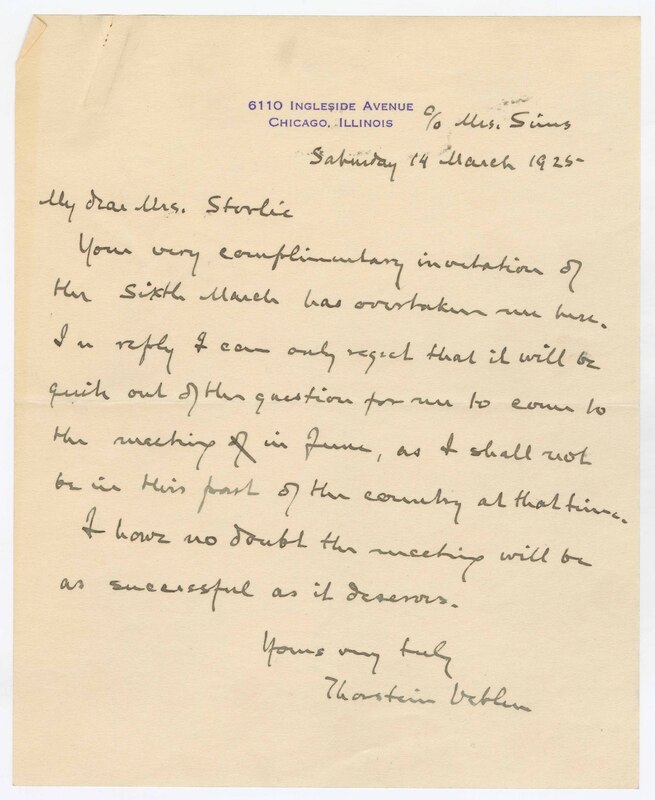 6110 INGLESIDE AVENUE
CHICAGO, ILLINOIS
c/o Mrs. Sims
Saturday 14 March 1925
My dear Mrs. Storlie
Your very complimentary invitation of
the Sixth March has overtaken me here.
In reply I can only regret that it will be
quite out of the question for me to come to
the meeting in June, as I shall not
be in this part of the country at that time.
I have no doubt the meeting will be
as successful as it deserves.
Yours very truly
Thorstein Veblen